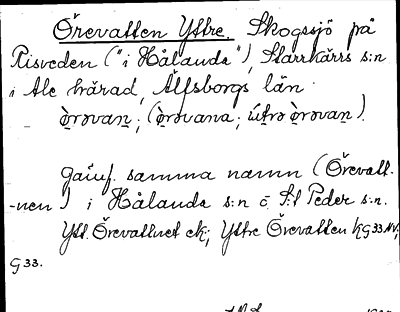 Örevatten Yttre. Skogssjö på
Risveden ("i Hålanda"), Starrkärrs s:n
i Ale härad, Älfsborgs län.
ò̤rǝvan̤; (ò̤rǝvana; út̤rǝ ò̤rǝvan).
jämf. samma namn (Örevatt-
-nen) i Hålanda s:n o. S:t Peder s:n.
Ytt. Örevattnet ek; Yttre Örevatten KG33NV;
G33.